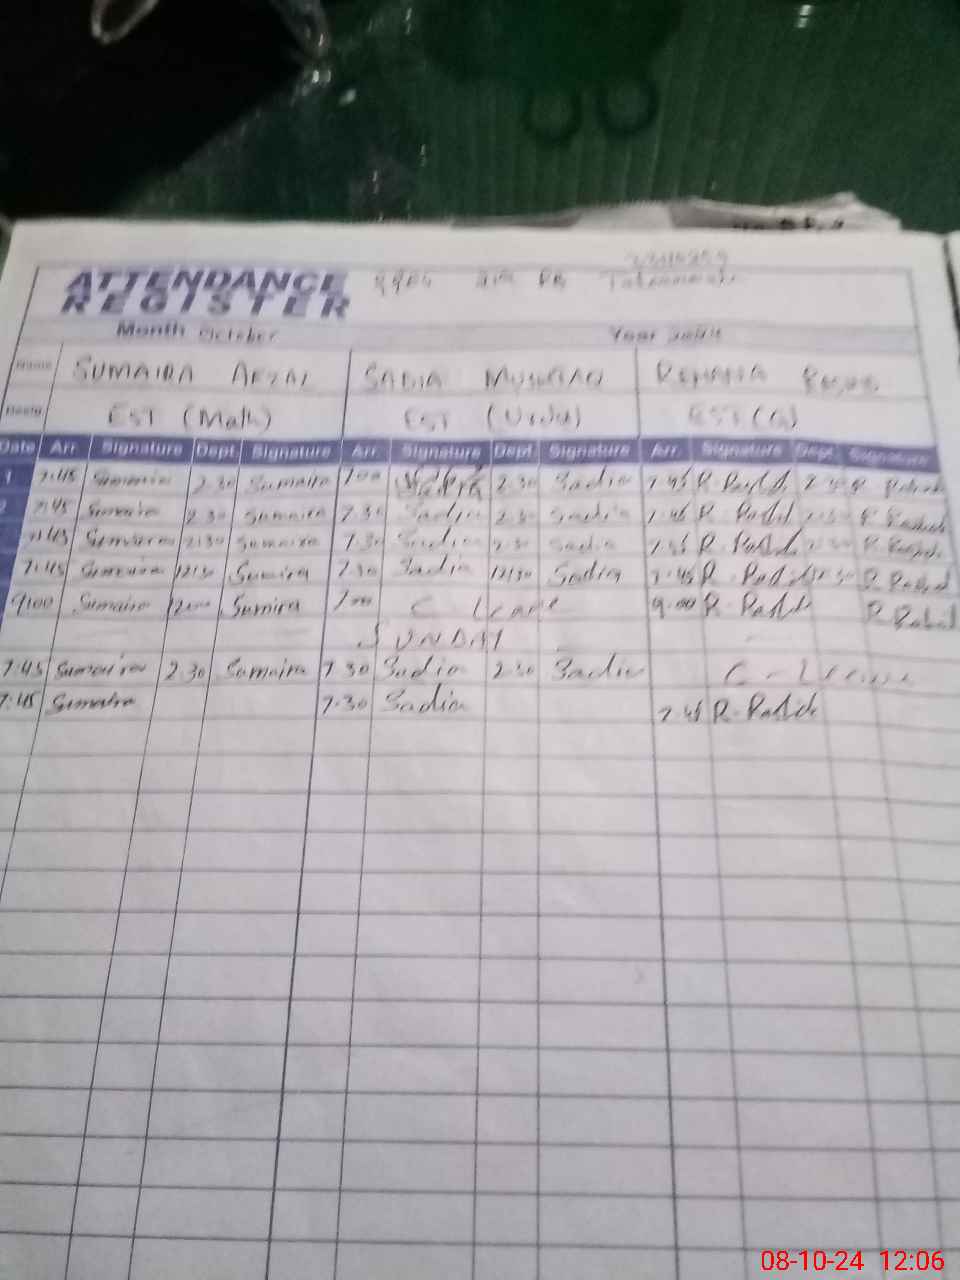 ATTENDANCE
REGISTER
Month October Year 2024
Name SUMAIRA AFZAL SADIA REHANA
Desig EST (Math) EST (Urdu) EST (G)
Date Arr. Signature Dept. Signature Arr. Signature Dept. Signature Arr. Signature Dept. Signature
1 7:45 Sumaira 2.30 Sumaira 7.00 2.30 Sadia 7.45 R. Rashid
2 7:45 Sumaira 2.30 Sumaira 7.30 Sadia 2.30 Sadia 7.45 R. Rashid
7:45 Sumaira 2:30 Sumaira 7.30 Sadia 2.30 Sadia 7.45 R. Rashid
7:45 Sumaira 12:30 Sumaira 7.30 Sadia 12:30 Sadia 7.45 R. Rashid
9:00 Sumaira 12:00 Sumaira C Leave 9.00 R. Rashid
SUNDAY
7:45 Sumaira 2.30 Sumaira 7.30 Sadia 2.30 Sadia C - Leave
7:45 Sumaira 7.30 Sadia 7.45 R. Rashid
08-10-24 12:06